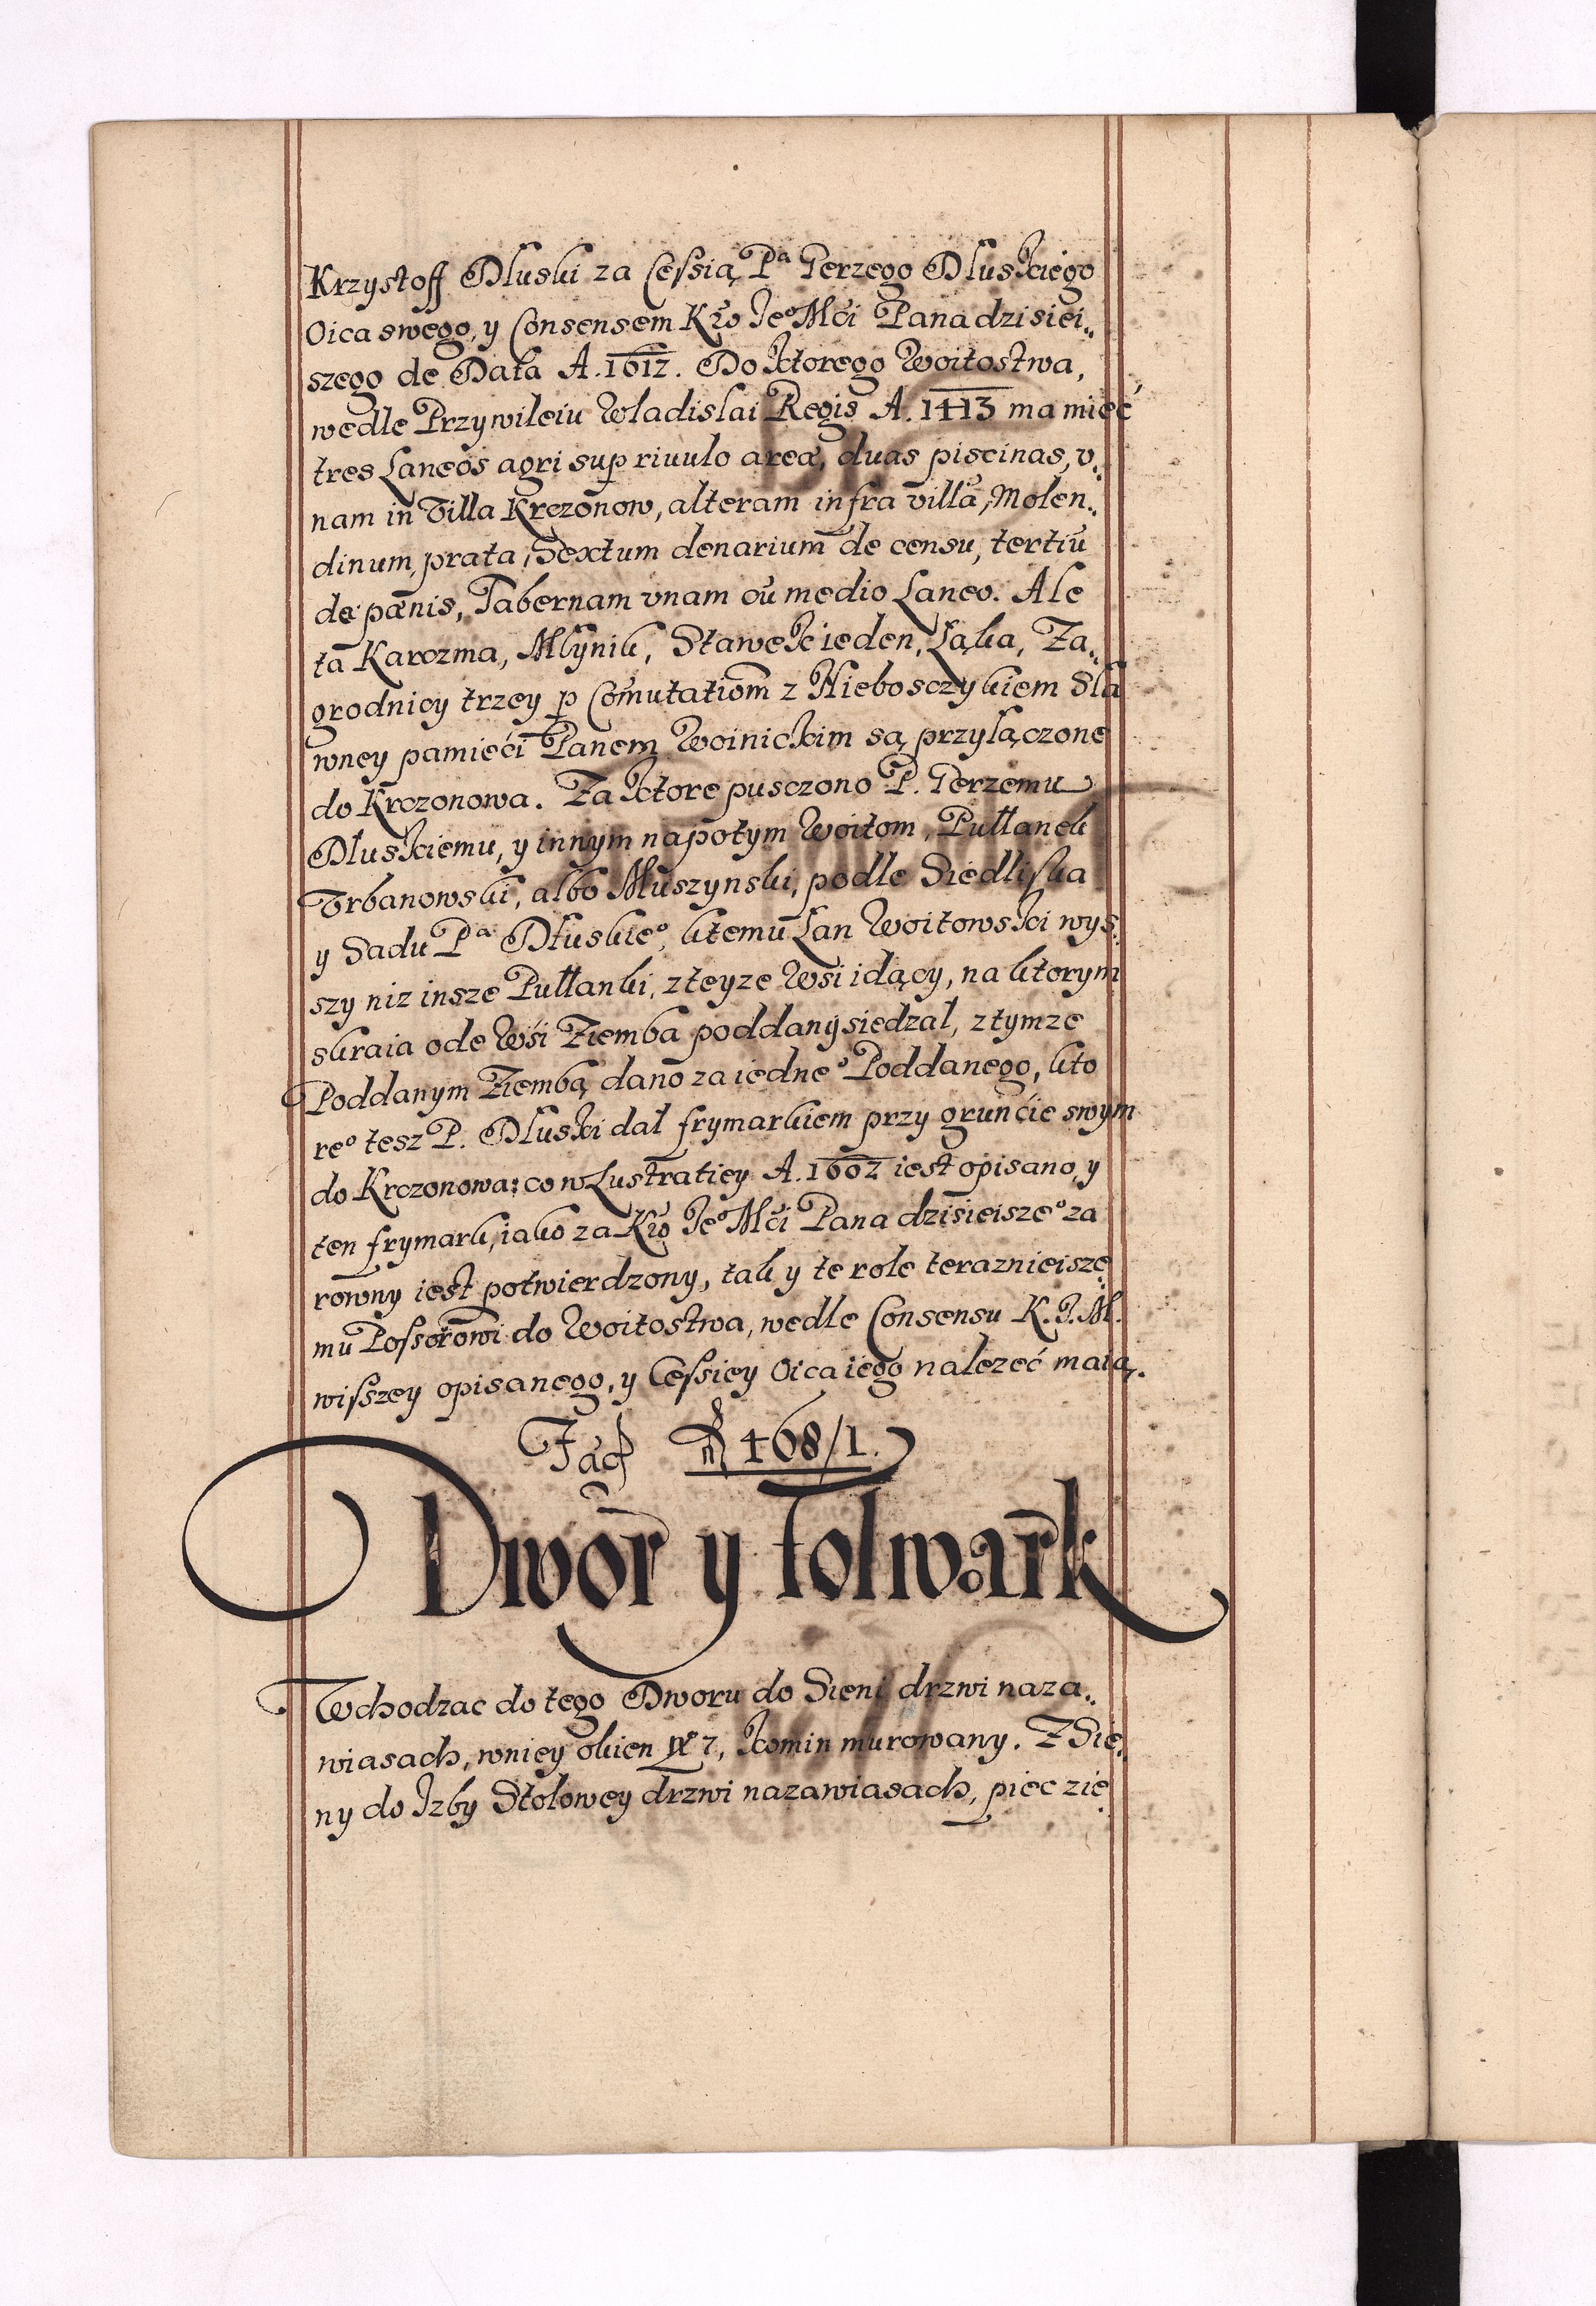 Krzystoff Dluski za Cessią Pª Jerzego Dluskiego
Oica swego, y Consensem Krͦ Jeͦ Mći Pana dzisiei„
szego de Data A. 1612. Do ktorego Woitostwa,
wedle Przywileiu Wladislai Regis A. 1413 ma mieć
tres Laneos agri sup riuulo areæ, duas piscinas, v„
nam in Villa Krczonow, alteram infra villã, Molen„
dinum, prata, Sextum denarium de censu, tertiũ
de pænis, Tabernam vnam cũ medio Laneo. Ale
ta Karczma, Mlynik, Stawek ieden, Ląka, Za„
grodnicy trzey p Com̃utatiom z Niebosczykiem Sla
wney pamięći Panem Woinickim są przylączone
do Krczonowa. Za ktore pusczono P. Jerzemu
Dluskiemu, y innym napotym Woitom, Pullanek
Vrbanowski, albo Muszynski, podle Siedliska
y Sadu Pª Dluskieͦ, ktemu Lan Woitowski wys„
szy niz insze Pullanki, z teyze Wsi idący, na ktorym
skraia ode Wsi Ziemba poddany siedzal, z tymze
Poddanym Ziembą dano za iedneͦ Poddanego, kto
reͦ tesz P. Dluski dal frymarkiem przy grunćie swym
do Krczonowa: co w Lustratiey A. 1602 iest opisano, y
ten frymark, iako za Krͦ Jeͦ Mći Pana dzisieiszeͦ za
rowny iest potwierdzony, tak y te role teraznieisze„
mu Possorowi do Woitostwa, wedle Consensu K. J. M.
wisszey opisanego, y Cessiey Oica iego nalezeć maią.
468/1.
Dwor y Folwark
Wchodzac do tego Dworu do Sieni drzwi na za„
wiasach, w niey okien 7, komin murowany. Z Sie„
ny do Izby Stolowey drzwi na zawiasach, piec zie„